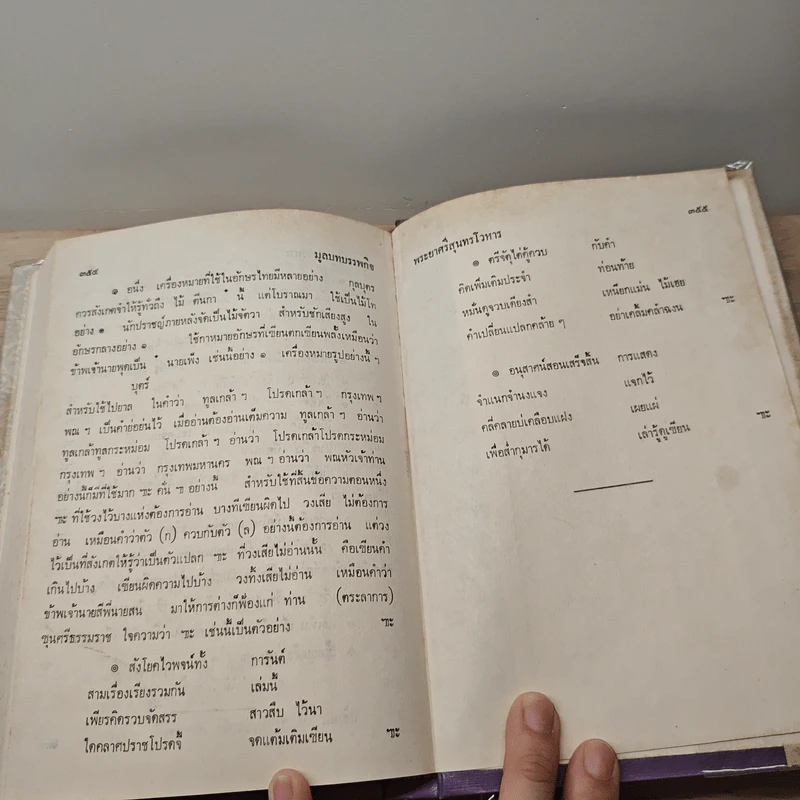 ๓๕๔ มูลบทบรรพกิจ
๏ อนึ่ง เครื่องหมายที่ใช้ในอักษรไทยมีหลายอย่าง กุลบุตร
ควรสังเกตจำให้รู้ทั่วถึง ไม้ ตีนกา ๋ นี้ แต่โบราณมา ใช้เป็นไม้โท
อย่าง ๑ นักปราชญ์ภายหลังจัดเป็นไม้จัตวา สำหรับชักเสียงสูง ใน
อักษรกลางอย่าง ๑ ใช้กาหมายอักษรที่เขียนตกเขียนพลั้งเหมือนว่า
ข้าพเจ้านายพุดเป็น ๋ นายเพ็ง เช่นนี้อย่าง ๑ เครื่องหมายรูปอย่างนี้ ๆ
บุตร์
สำหรับใช้ไปยาล ในคำว่า ทูลเกล้า ฯ โปรดเกล้า ฯ กรุงเทพ ฯ
พณ ฯ เป็นคำย่อยนไว้ เมื่ออ่านต้องอ่านเต็มความ ทูลเกล้า ฯ อ่านว่า
ทูลเกล้าทูลกระหม่อม โปรดเกล้า ฯ อ่านว่า โปรดเกล้าโปรดกระหม่อม
กรุงเทพ ฯ อ่านว่า กรุงเทพมหานคร พณ ฯ อ่านว่า พณหัวเจ้าท่าน
อย่างนี้ก็มีที่ใช้มาก ฯะ คั่น ฯ อย่างนี้ สำหรับใช้ที่สิ้นข้อความตอนหนึ่ง
ฯะ ที่ใช้วงไว้บางแห่งต้องการอ่าน บางทีเขียนผิดไป วงเสีย ไม่ต้องการ
อ่าน เหมือนคำว่าตัว (ก) ควบกับตัว (ล) อย่างนี้ต้องการอ่าน แต่วง
ไว้เป็นที่สังเกตให้รู้ว่าเป็นตัวแปลก ฯะ ที่วงเสียไม่อ่านนั้น คือเขียนคำ
เกินไปบ้าง เขียนผิดความไปบ้าง วงทิ้งเสียไม่อ่าน เหมือนคำว่า
ข้าพเจ้านายสีพี่นายสน มาให้การต่างก็พ้องแก่ ท่าน (ตระลาการ)
ขุนศรีธรรมราช ใจความว่า ฯะ เช่นนี้เป็นตัวอย่าง ฯะ
๏ สังโยคไวพจน์ทั้ง การันต์
สามเรื่องเรียงรวมกัน เล่มนี้
เพียรคิดรวบจัดสรร สาวสืบ ไว้นา
ใดคลาศปราชโปรดจี้ จดแต้มเติมเขียน ฯะ
พระยาศรีสุนทรโวหาร ๓๕๕
๏ ตรีจัตุไต่คู้ควบ กับคำ
คิดเพิ่มเติมประจำ ท่อนท้าย
หมั่นดูจวบเดียงสำ เหนียกแม่น ไม้เฮย
คำเปลี่ยนแปลกคล้าย ๆ อย่าเคล้มคล้าฉงน ฯะ
๏ อนุสาศน์สอนเสร็จสิ้น การแสดง
จำแนกจำนงแจง แจกไว้
คลี่คลายบ่เคลือบแฝง เผยแผ่
เพื่อส่ำกุมารได้ เล่ารู้ดูเขียน ฯะ